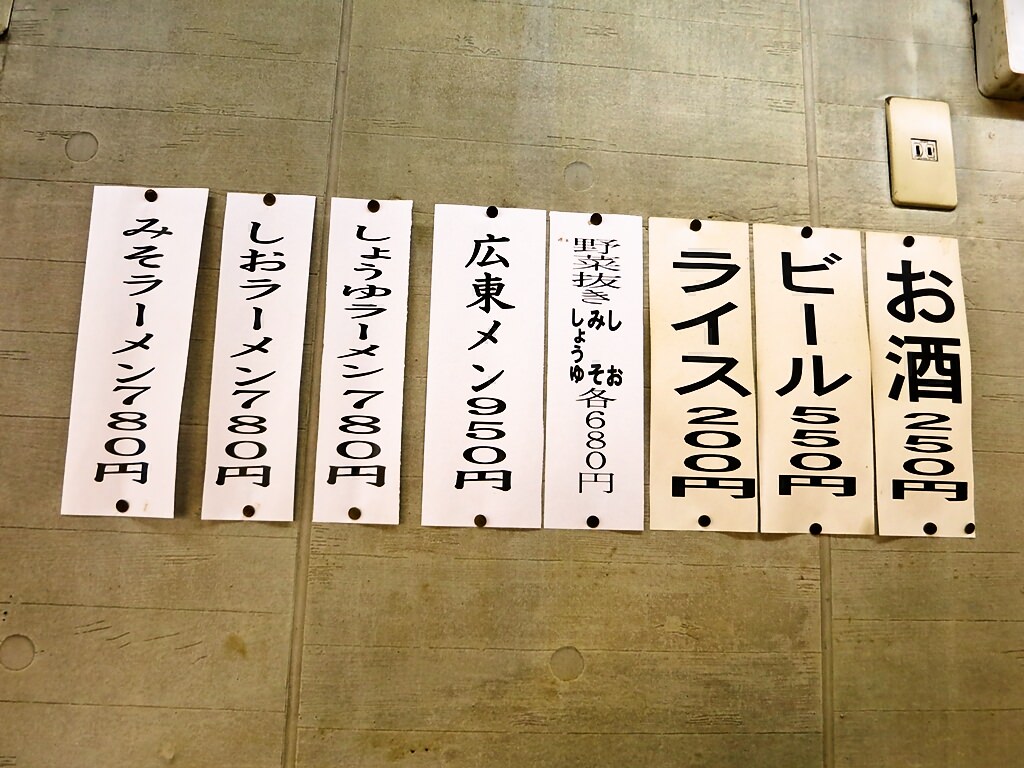 お酒250円
ビール550円
ライス200円
野菜抜き
しお
みそ
しょうゆ
各680円
広東メン950円
しょうゆラーメン780円
しおラーメン780円
みそラーメン780円